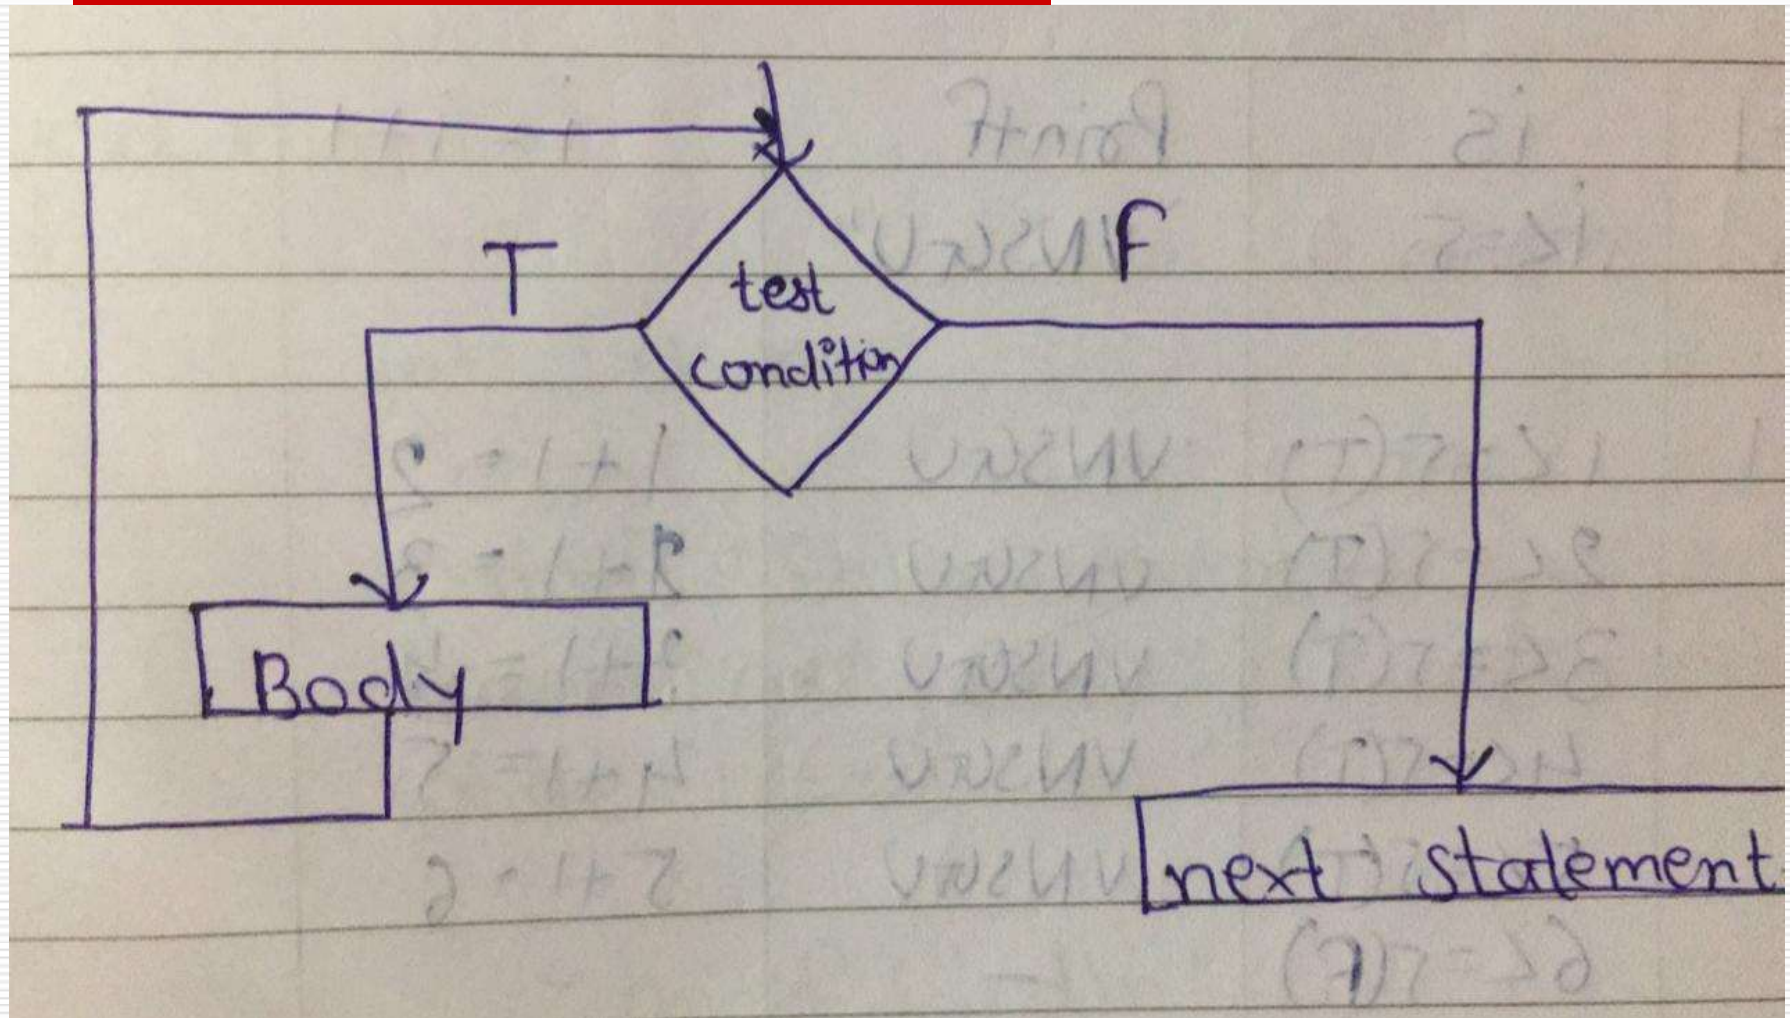 T
F
test
condition
Body
next statement